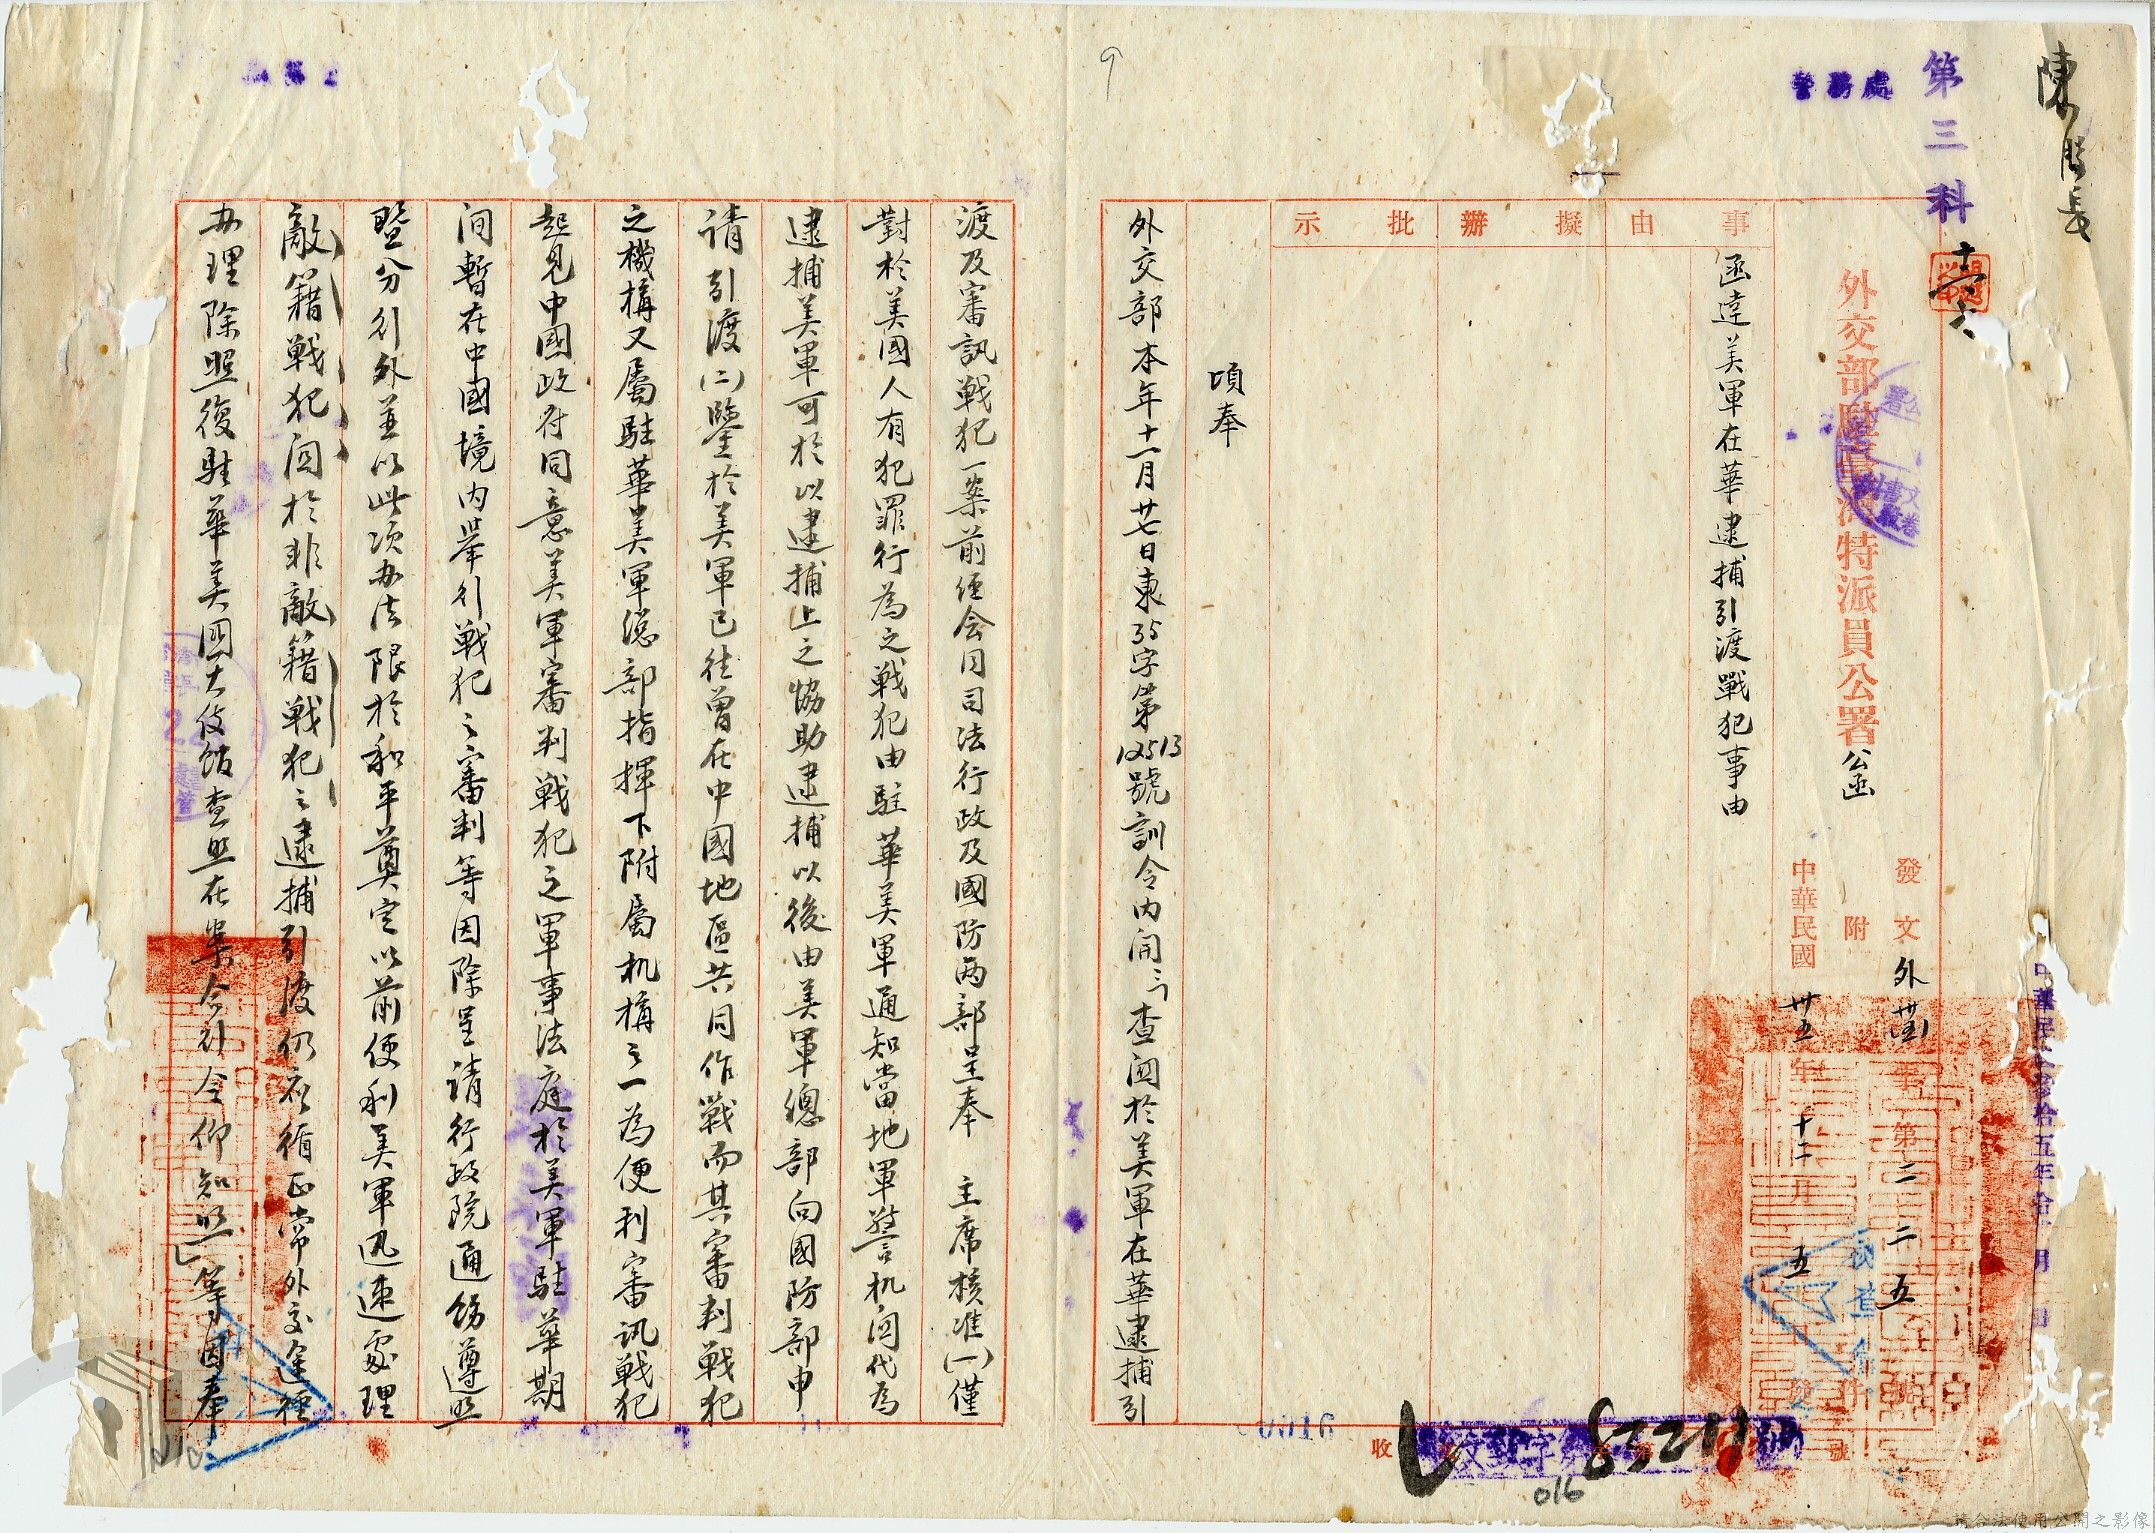 陳股長
第三科
警務處
外交部駐臺灣特派員公署公函
發文外
字第二二五
號
附
件
中華民國卅五年十二月五
事由
擬辦
批示
函達美軍在華逮捕引渡戰犯事由
頃奉
外交部本年十一月廿七日東35字第12513號訓令內開：「查關於美軍在華逮捕引
渡及審訊戰犯一案前經会同司法行政及國防两部呈奉　主席核准(一)僅
對於美國人有犯罪行為之戰犯由駐華美軍通知當地軍警机関代為
逮捕美軍可於以逮捕上之協助逮捕以後由美軍總部向國防部申
請引渡(二)鑒於美軍已往曾在中國地區共同作戰而其審判戰犯
之機構又屬駐華美軍總部指揮下附屬机構之一為便利審訊戰犯
起見中國政府同意美軍審判戰犯之軍事法庭於美軍駐華期
间暫在中國境内舉行戰犯之審判等因除呈請行政院通飭遵照
暨分行外並以此項办法限於和平奠定以前便利美軍迅速處理
敵籍戰犯関於非敵籍戰犯之逮捕引渡仍應循正常外交途徑
办理除照復駐華美國大使館查照在案合行令仰知照」等因奉
收
文
字
83211
號
016
0016
9